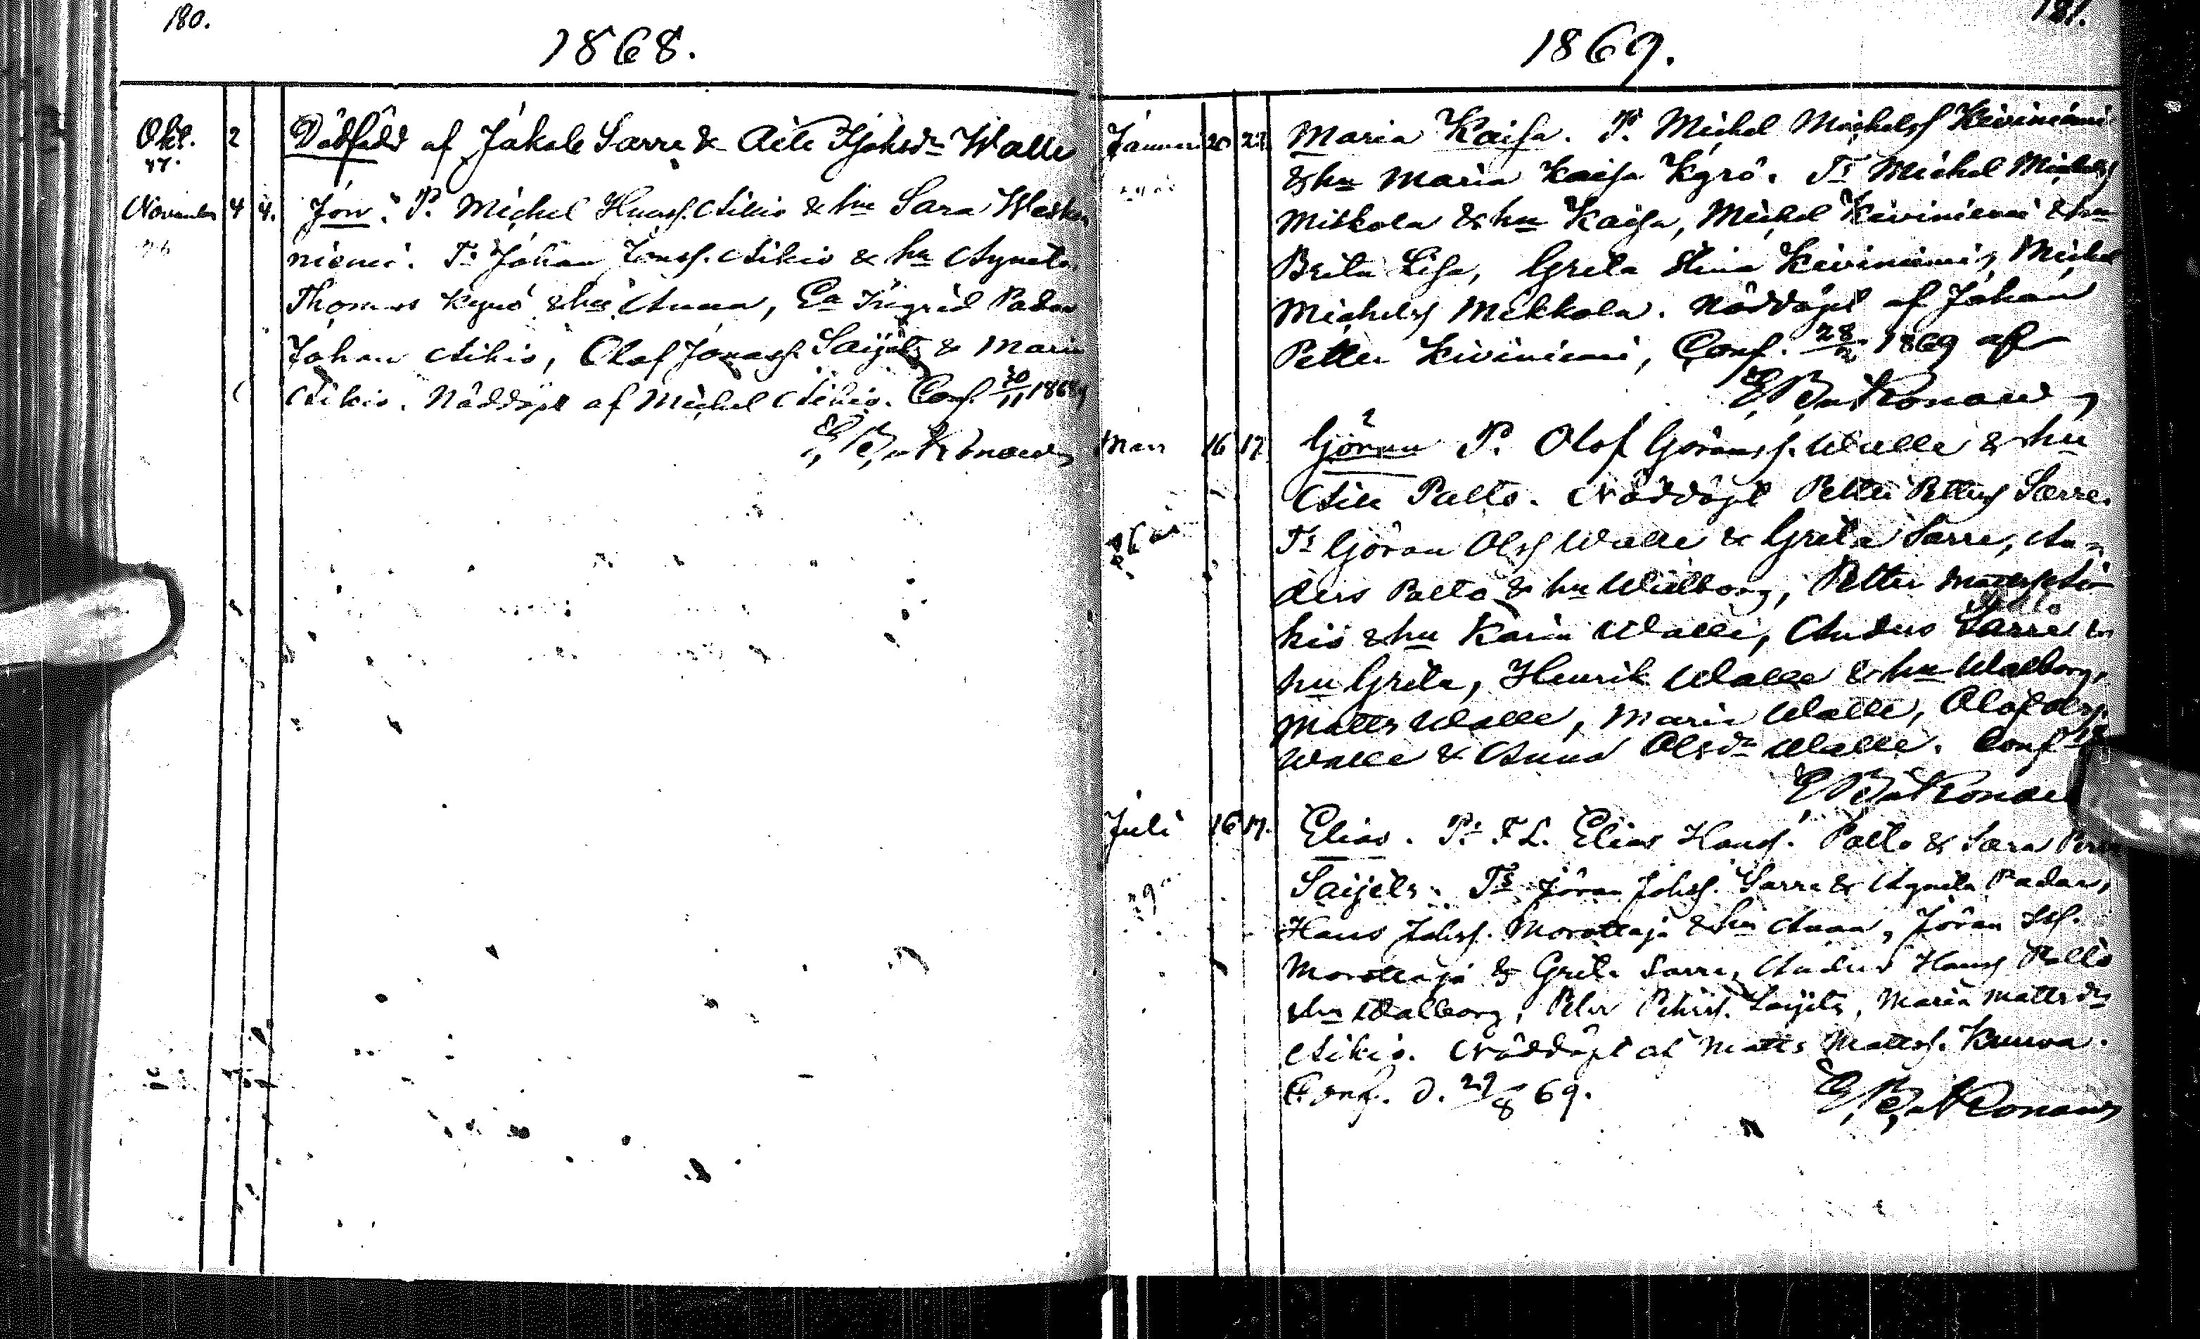 180.
1868.
Okt. 2 Dödfödd af Jakob Sarre & Aile Hjohsdr Walle
November 4 4. Jon. P. Michel Hanss. Aikio & hu Sara
niemi. Ts Johan Jonss. Aikio & hu Agneta
Thomas Kyrö & hu Anna, Ea Ingrid Padar
Johan Aikio, Olof Jonass. Saijets & Maria
Aikio. Nöddöpt af Michel Aikio. Conf. 30/11 1868
181.
1869.
Januari 20 Maria Kaisa. P. Michel Michelss Kiviniemi
& hu Maria Kaisa Kyrö. Ts Michel Michelss
Mikkola & hu Kaisa, Michel Kiviniemi & hu
Brita Lisa, Greta Stina Kiviniemi, Michel
Michelss Mikkola. Nöddöpt af Johan
Petter Kiviniemi, Conf. 28/2 1869 af
Mars 16 17 Göran P. Olof Göranss. Walle & hu
Aile Palto. Nöddöpt Petter Petterss Sarre.
Ts Göran Olss Walle & Greta Sarre, An-
ders Palto & hu Walborg, Petter Matss Ai-
kio & hu Karin Walle, Anders Sarre &
hu Greta, Henrik Walle & hu Walborg,
Matts Walle, Maria Walle, Olof Olss.
Walle & Anna Olsdr Walle. Conf
Juli 16 17. Elias. P. F.L. Elias Hanss. Palto & Sara
Saijets. Ts Jöran Johss. Sarre & Agneta Padar,
Hans Johss. Morottaja & hu Anna, Jöran
Morottaja & Greta Sarre, Anders Hanss Palto
& hu Walborg, Peter Pehrss. Saijets, Maria Mattsdr
Aikio. Nöddöpt af Matts Mattss. Kuuva.
Conf. d. 29/8 69.